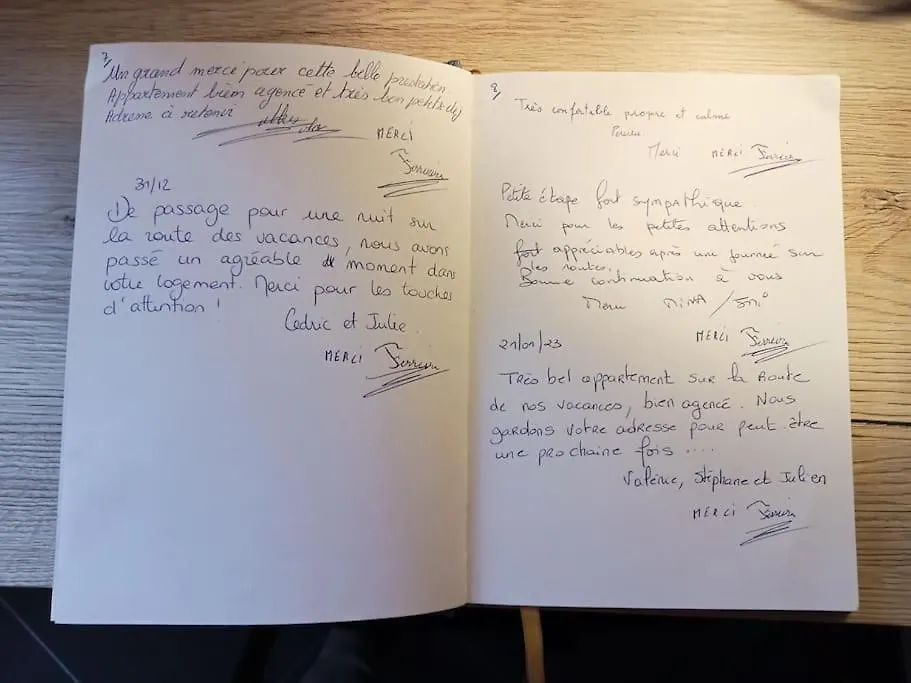 7/
Un grand merci pour cette belle prestation.
Appartement bien agencé et très bon petit dej
Adresse à retenir
MERCI
31/12
De passage pour une nuit sur
la route des vacances, nous avons
passé un agréable moment dans
votre logement. Merci pour les touches
d'attention !
Cedric et Julie.
MERCI
8/
Très confortable propre et calme
Merci MERCI
Petite étape fort sympathique.
Merci pour les petites attentions
fort appréciables après une journée sur
les routes.
Bonne continuation à vous
MERCI
21/01/23
Très bel appartement sur la Route
de nos vacances, bien agencé. Nous
gardons votre adresse pour peut être
une prochaine fois ....
Valérie, Stéphane et Julien
MERCI